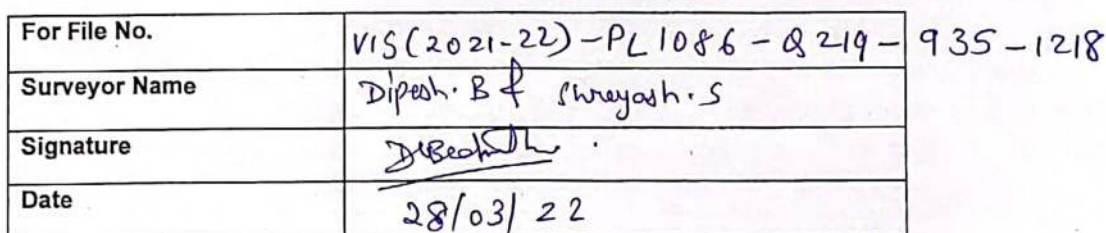 For File No. VIS(2021-22)-PL1086-Q219-935-1218
Surveyor Name Dipesh. B & Shreyash. S
Signature
Date 28/03/22